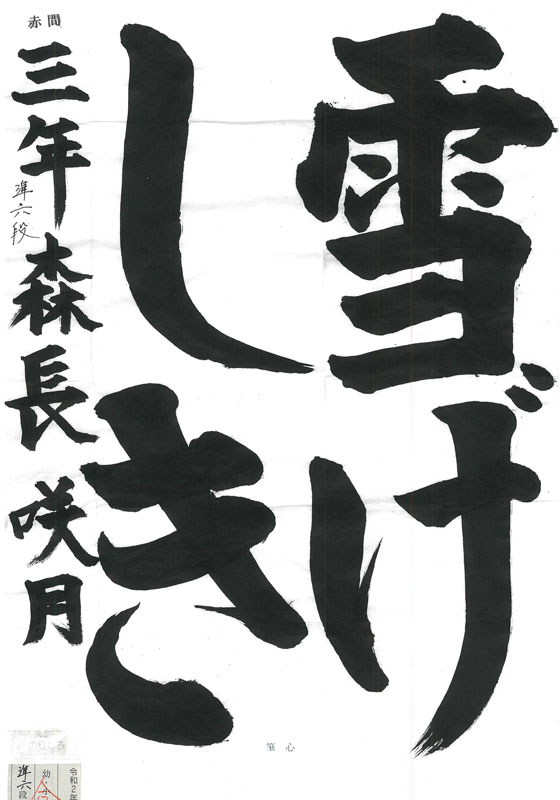 雪げ
しき
赤間
三年 森長咲月
準六段
心筆
令和2年
幼・小
準六段